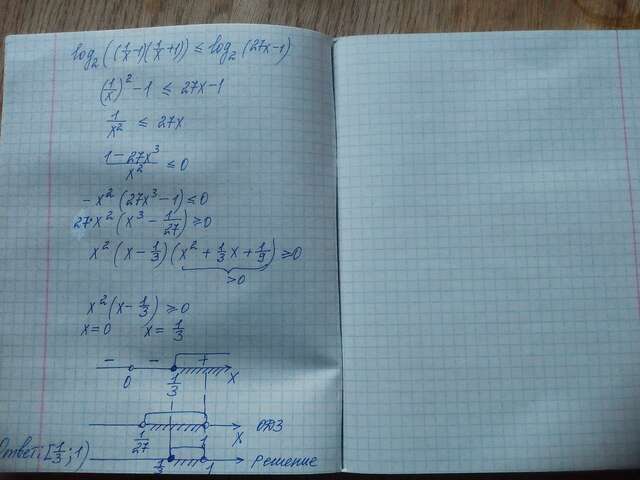 log₂((1/x-1)(1/x+1)) ≤ log₂(27x-1)
(1/x)² - 1 ≤ 27x-1
1/x² ≤ 27x
(1-27x³)/x² ≤ 0
-x²(27x³-1) ≤ 0
27·x²(x³ - 1/27) ≥ 0
x²(x - 1/3)(x² + 1/3x + 1/9) ≥ 0
>0
x²(x - 1/3) ≥ 0
x=0 x = 1/3
- - +
0 1/3 x
1/27 1 x ОДЗ
Ответ: [1/3; 1) 1/3 1 решение